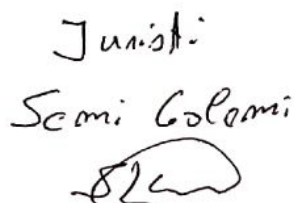 Juristi
Semi Golemi